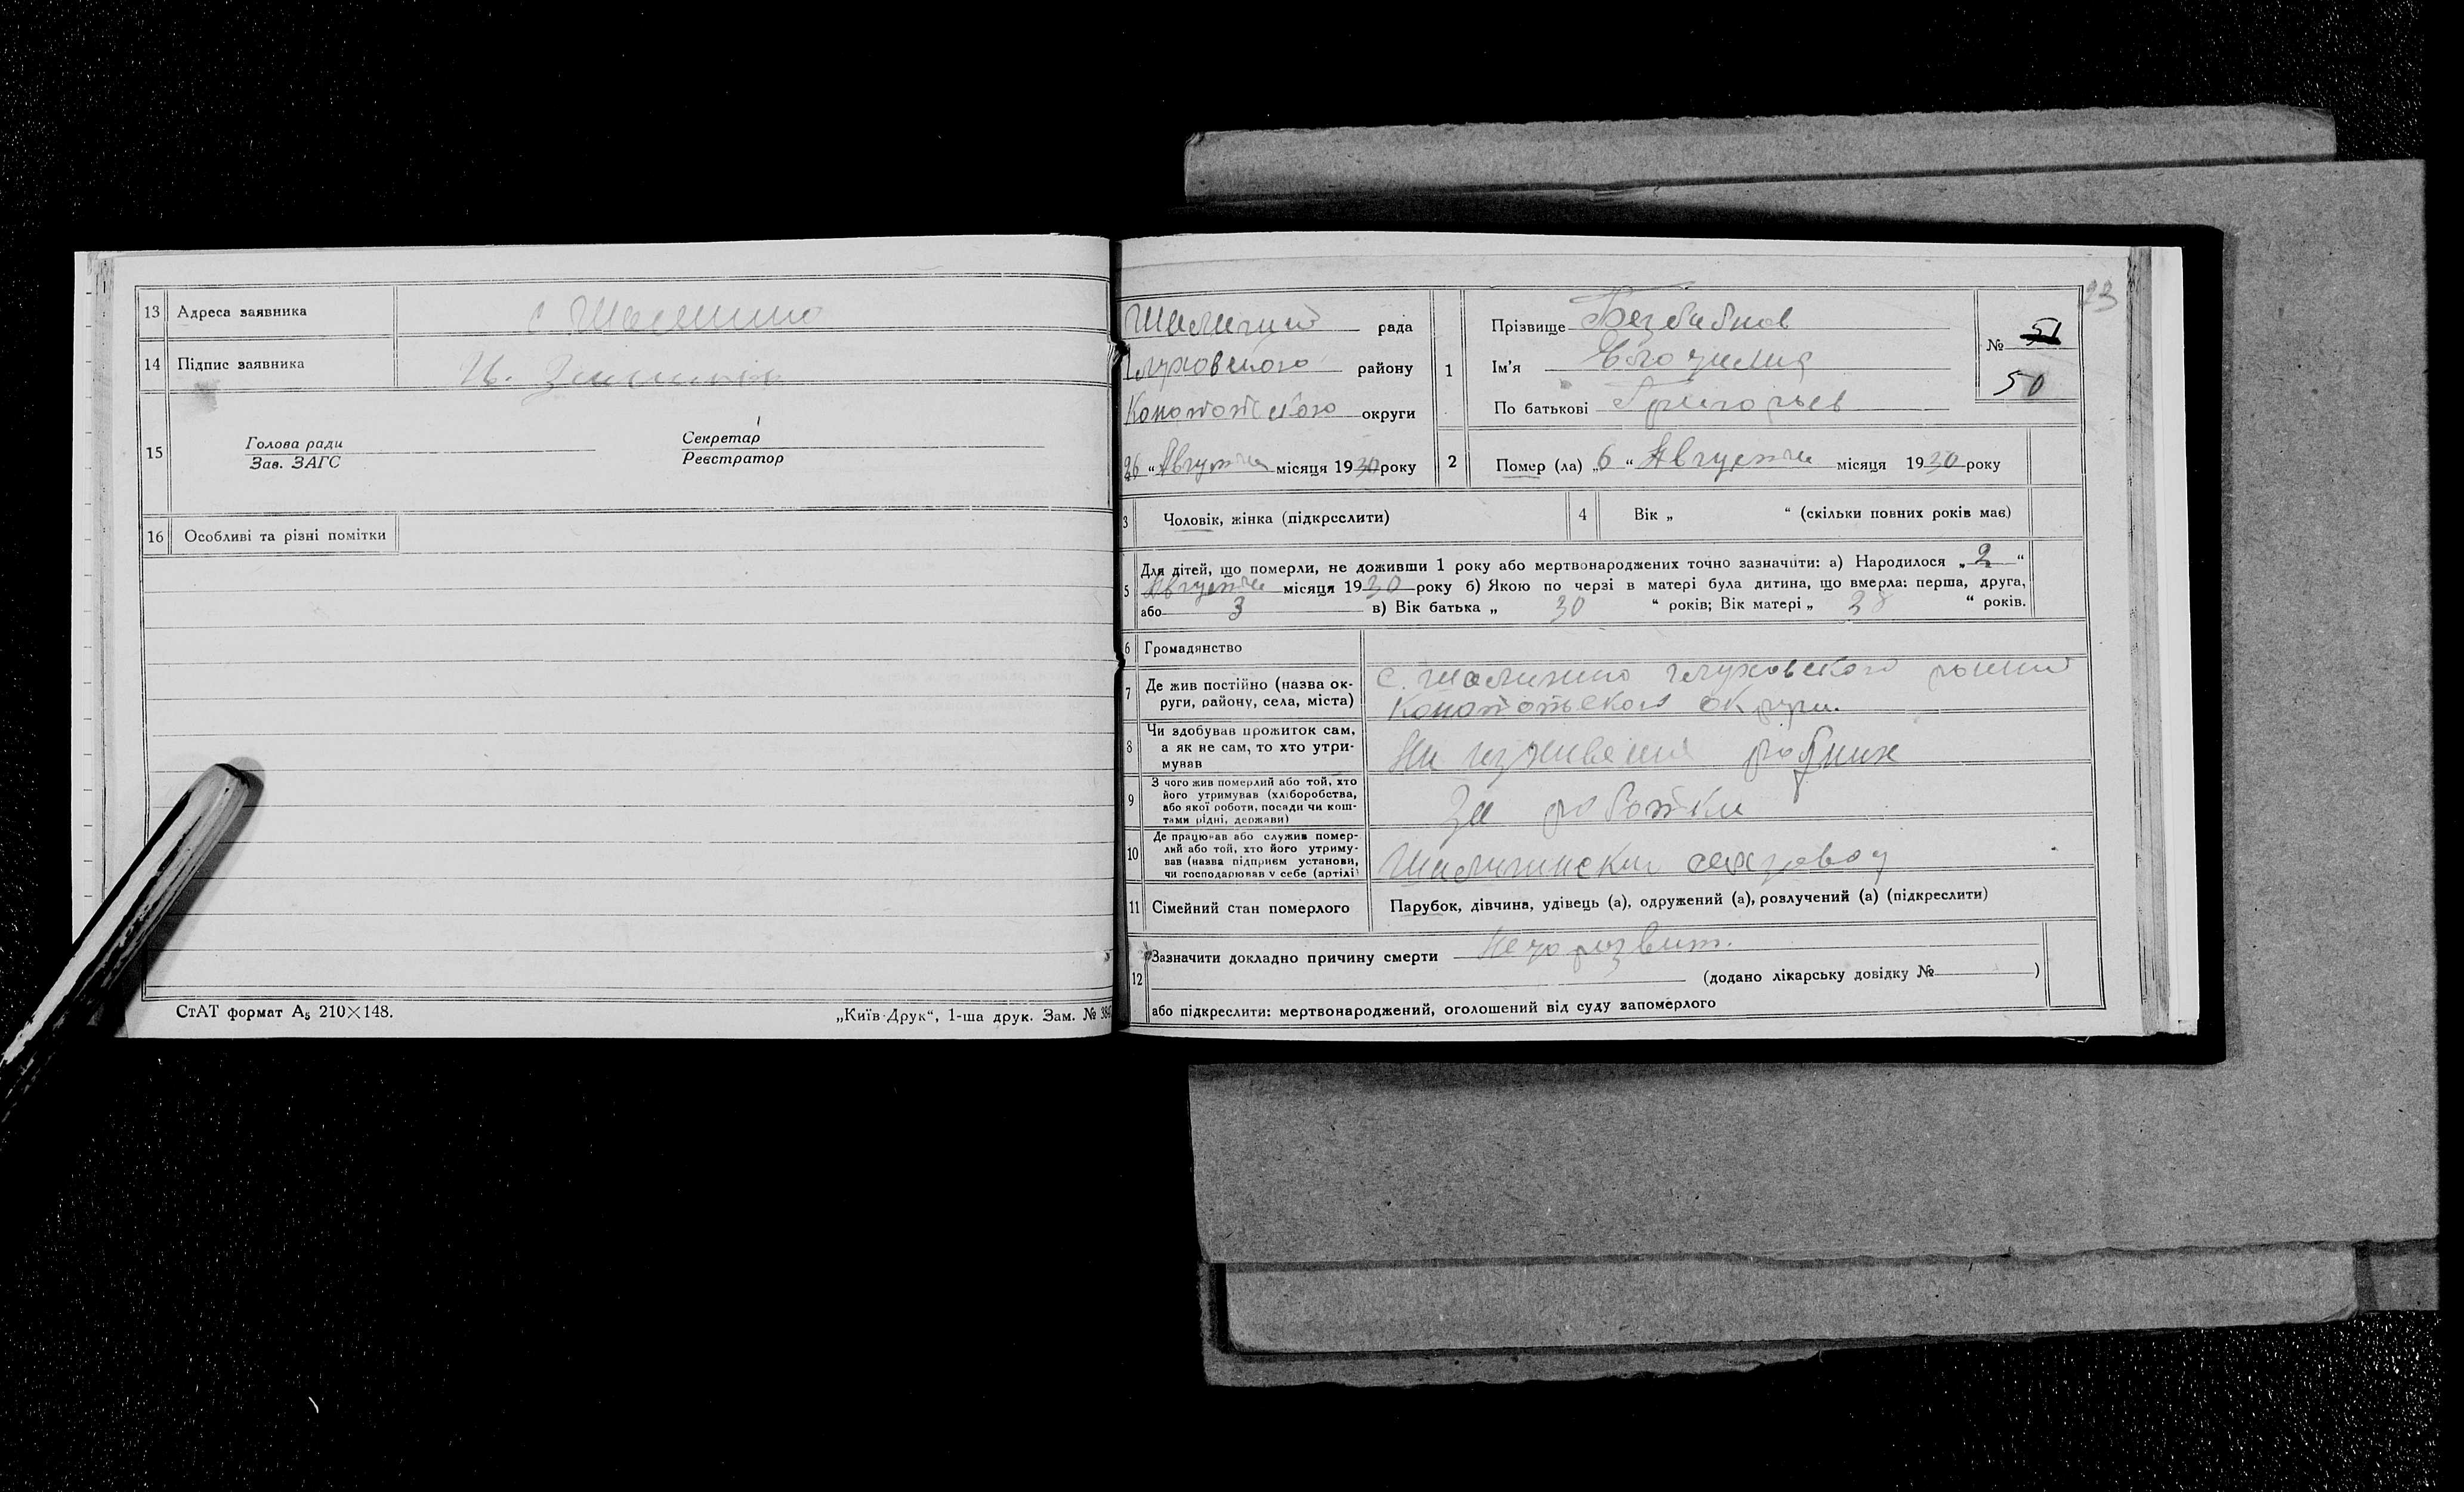 13 Адреса заявника с Шалыгино
14 Підпис заявника
15 Голова ради Секретар
Зав. ЗАГС Реєстратор
16 Особливі та різні помітки
СтАТ формат А5 210×148. „Київ-Друк“, 1-ша друк. Зам. №
23
рада
Глуховского району
Конотопского округи
26 “ Августа місяця 1930 року
1 Прізвище
Ім'я
По батькові Григорьев
№ 51
50
2 Помер (ла) „6 “ Августа місяця 1930 року
3 Чоловік, жінка (підкреслити)
4 Вік „ “ (скільки повних років має)
5 Для дітей, що померли, не доживши 1 року або мертвонароджених точно зазначити: а) Народилося „ 2 “
Августа місяця 1930 року б) Якою по черзі в матері була дитина, що вмерла: перша, друга,
або 3 в) Вік батька „ 30 “ років; Вік матері „ “ років.
6 Громадянство
7 Де жив постійно (назва ок-
руги, району, села, міста)
с. Шалыгино Глуховского
Конотопського округи.
8 Чи здобував прожиток сам,
а як не сам, то хто утри-
мував
На иждивении родних
9 З чого жив померлий або той, хто
його утримував (хліборобства,
або якої роботи, посади чи кош-
тами рідні, держави)
За работки
10 Де працював або служив помер-
лий або той, хто його утриму-
вав (назва підприєм установи,
чи господарював у себе (артілі)
Шалигински сахзавод
11 Сімейний стан померлого Парубок, дівчина, удівець (а), одружений (а), розлучений (а) (підкреслити)
12 Зазначити докладно причину смерти
(додано лікарську довідку № )
або підкреслити: мертвонароджений, оголошений від суду запомерлого